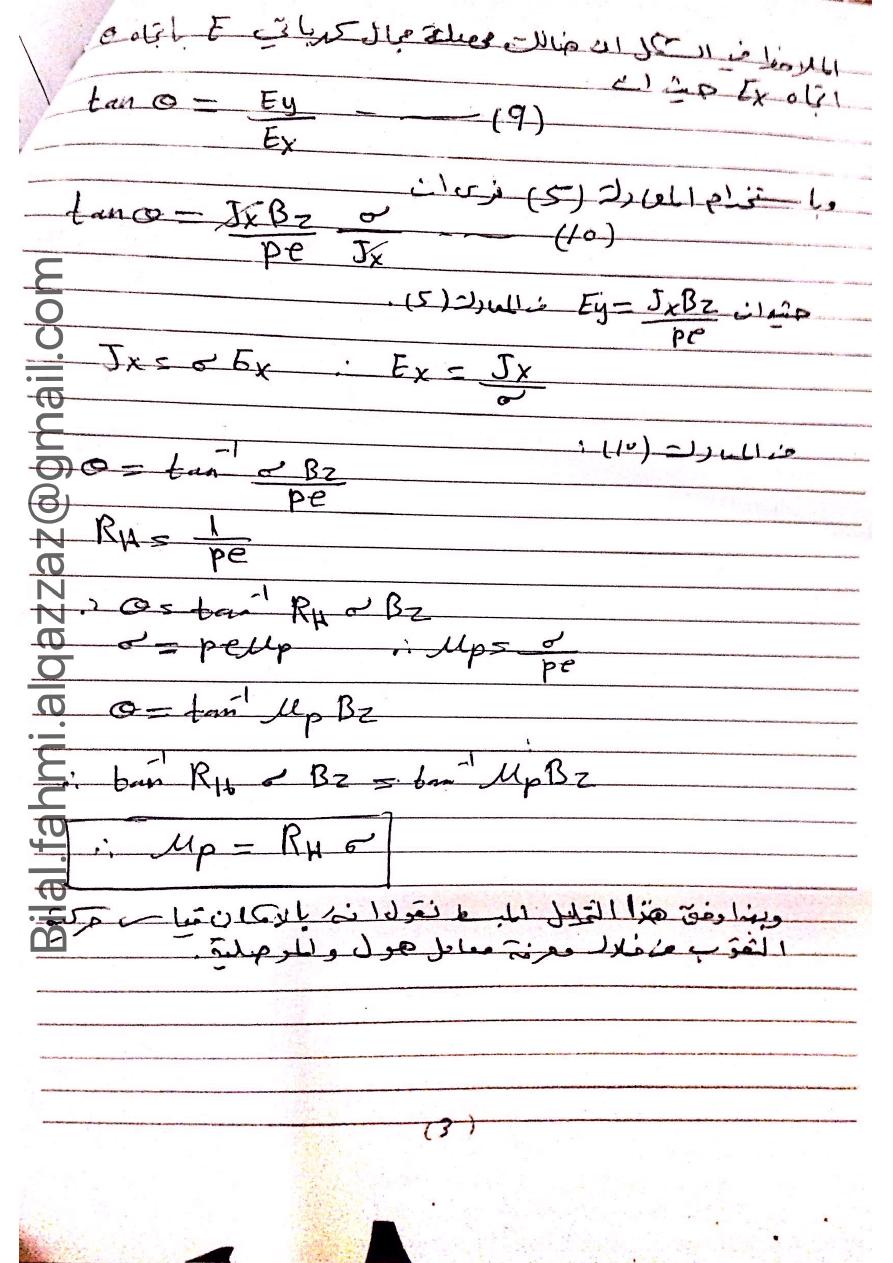 الملاحظ في الشكل ان هنالك محصلة مجال كهربائي E باتجاه θ
اتجاه Ex حيث ان
tan θ = Ey/Ex - — (9)
وباستخدام المعادلة (5) نرى ان
tan θ = JxBz/pe σ/Jx --- (10)
حيث ان Ey = JxBz/pe من المعادلة (5).
Jx = σ Ex ∴ Ex = Jx/σ
من المعادلة (10) :
θ = tan⁻¹ σ Bz/pe
RH = 1/pe
∴ θ = tan⁻¹ RH σ Bz
σ = peμp ∴ μp = σ/pe
θ = tan⁻¹ μp Bz
∴ tan⁻¹ RH σ Bz = tan⁻¹ μp Bz
∴ μp = RH σ
وبهذا وفق هذا التحليل المبسط نقول انه بالامكان قياس حركية
الثقوب من خلال معرفة معامل هول والموصلية.
(3)
Bilal.fahmi.alqazzaz@gmail.com